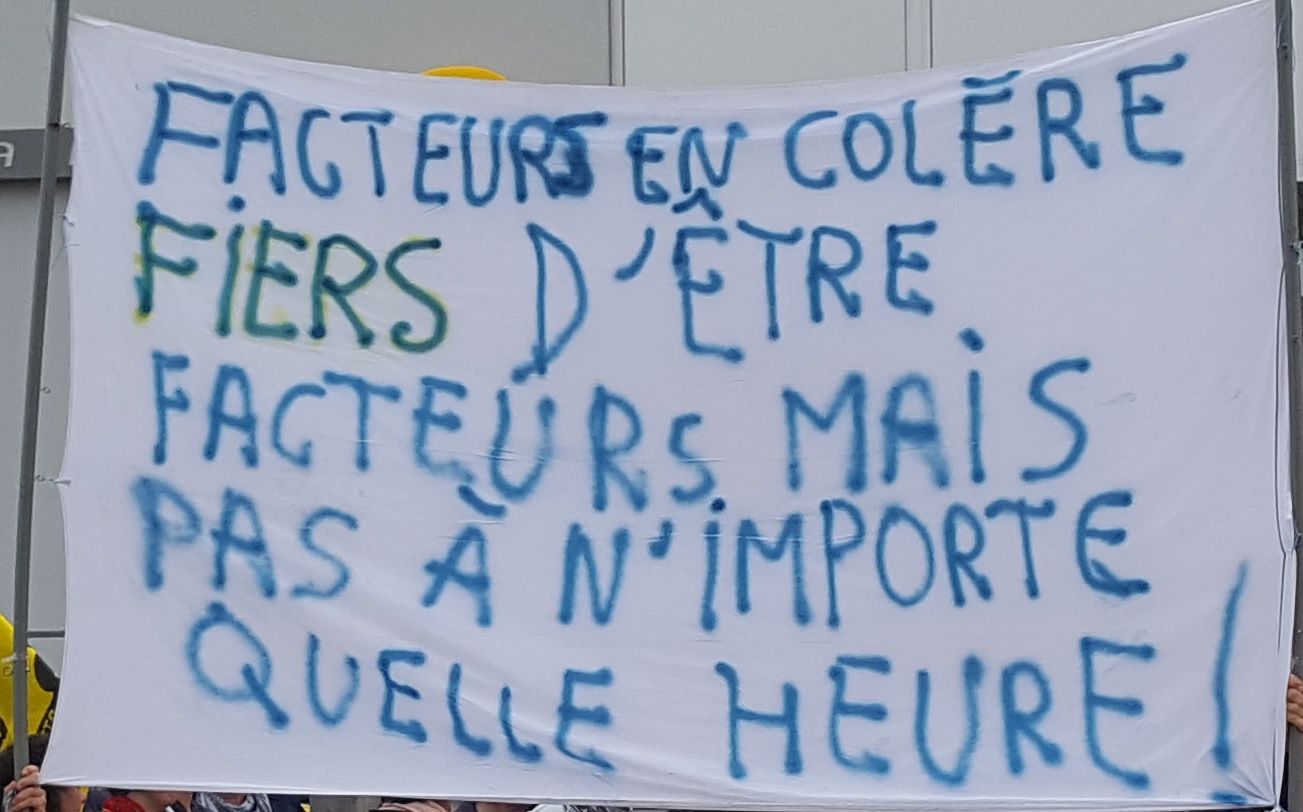 FACTEURS EN COLÈRE
FIERS D'ÊTRE
FACTEURS MAIS
PAS À N'IMPORTE
QUELLE HEURE !